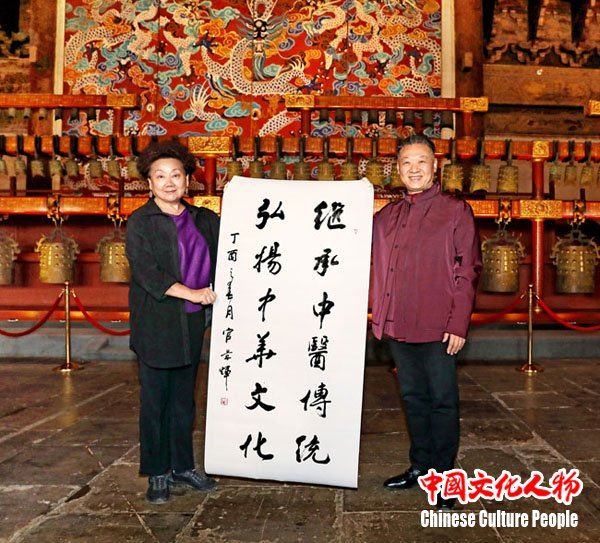 继承中醫傳统
弘揚中華文化
丁酉之春月官景輝
中国文化人物
Chinese Culture People